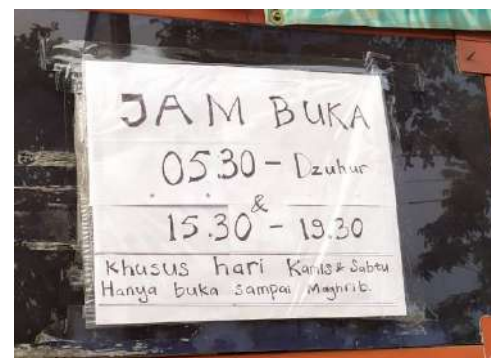 JAM BUKA
05.30 - Dzuhur
&
15.30 - 19.30
Khusus hari Kamis & Sabtu
Hanya buka sampai Maghrib.